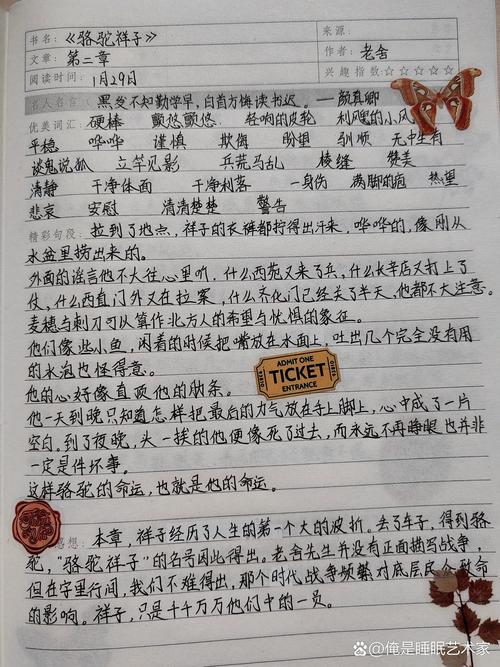 书名：《骆驼祥子》
来源：
文章：第二章
作者：老舍
阅读时间：1月29日
兴趣指数：☆☆☆☆☆
名人名言（黑发不知勤学早，白首方悔读书迟。——颜真卿
优美词汇：硬棒 颤悠颤悠 轻响的皮轮 利飕的小风
平稳 哗哗 谨慎 欺侮 盼望 驯顺 无中生有
谈鬼说狐 立竿见影 兵荒马乱 棱缝 赞美
清静 干净体面 干净利落 一身伤 满脚的疤 热里
悲哀 安慰 清清楚楚 警告
精彩句段：拉到了地点，祥子的衣裤都拧得出汗来，哗哗的，像刚从
水盆里捞出来的。
外面的谣言他不大往心里听，什么西苑又来了兵，什么长辛店又打上了
仗，什么西直门外又在拉案，什么齐化门已经关了半天，他都不大注意。
麦穗与刺刀可以算作北方人的希望与忧惧的象征。
他们像些小鱼，闲着的时候把嘴放在水面上，吐出几个完全没有用
的水泡也怪得意。
ADMIT ONE
TICKET
ENTRANCE
他的心好像直顶他的肋条。
他一天到晚只知道怎样把最后的力气放在手上脚上，心中成了一片
空白。到了夜晚，头一挨的他便像死了过去，而永远不再睁眼也并非
一定是件坏事。
这样骆驼的命运，也就是他的命运。
感想：本章，祥子经历了人生的第一个大的波折。丢了车子，得到骆
驼，"骆驼祥子"的名号因此得出。老舍先生并没有正面描写战争，
但在字里行间，我们不难得出，那个时代战争频繁对底层民众致命
的影响。祥子，只是千千万万他们中的一员。
知乎 @俺是睡眠艺术家